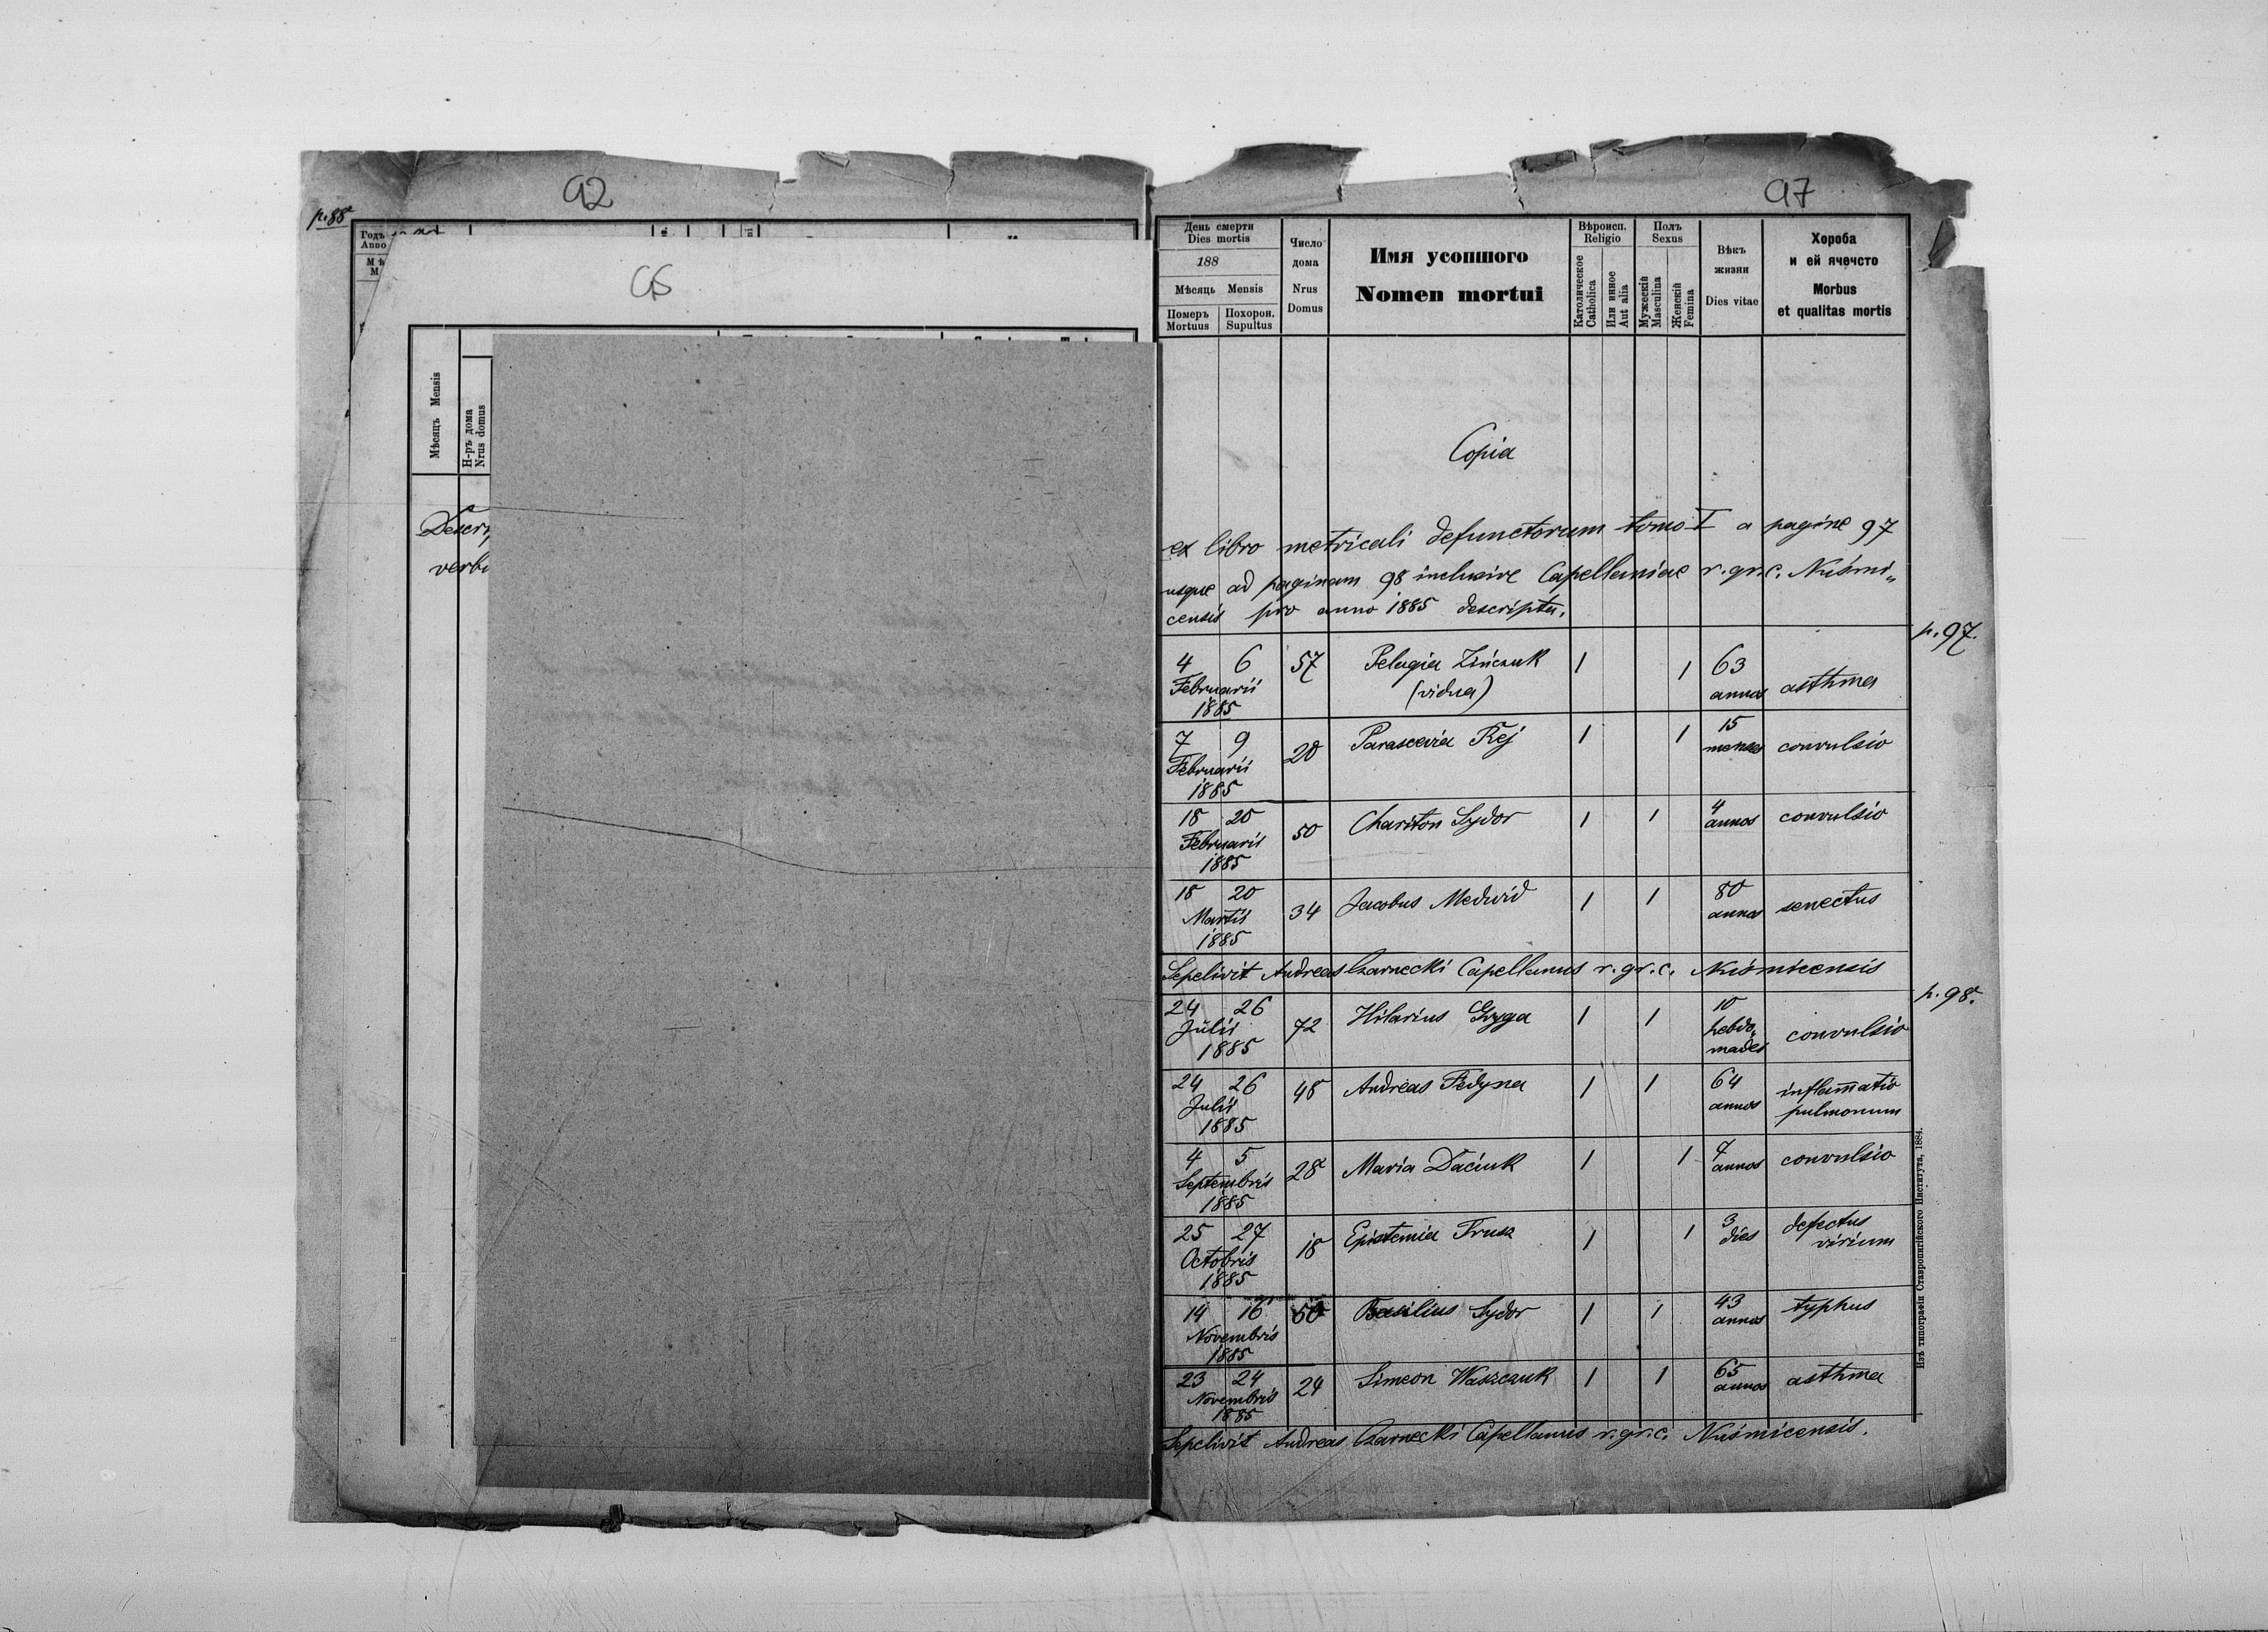 92
97
p. 88
Годъ
Anno
95
Мѣсяць Mensis
Н-ръ дома
Nrus domus
День смерти
Dies mortis
188
Мѣсяць Mensis
Померъ
Mortuus
Похорон.
Supultus
Число
дома
Nrus
Domus
Имя усопшого
Nomen mortui
Вѣроисп.
Religio
Католическое
Catholica
Или инное
Aut alia
Полъ
Sexus
Мужескій
Masculina
Женскій
Femina
Вѣкъ
жизни
Dies vitae
Хороба
и ей ячество
Morbus
et qualitas mortis
Copia
ex libro metricali defunctorum tomo I a pagine 97
usque ad paginam 98 inclusive Capellaniae r. gr. c. Nuśmi„
censis pro anno 1885 descripta.
p. 97.
4 6 57 Pelagia Zińczuk 1 1 63
Februarii (vidua) annos asthma
1885
7 9 20 Parascevia Rej 1 1 15
Februarii menses convulsio
1885
18 20 50 Chariton Sydor 1 1 4
Februarii annos convulsio
1885
18 20 34 Jacobus Medwid 1 1 80
Martii annos senectus
1885
Sepelivit Andreas Czarnecki Capellanus r. gr. c. Nuśmicensis
p. 98.
24 26 72 Hilarius Gryga 1 1 10
Julii hebdo„ convulsio
1885 mades
24 26 48 Andreas Fedyna 1 1 64 inflammatio
Julii annos pulmonum
1885
4 5 28 Maria Daciuk 1 1 7
Septembris annos convulsio
1885
25 27 18 Epistemia Trusz 1 1 3 defectus
Octobris dies virium
1885
14 16 50 Basilius Sydor 1 1 43 typhus
Novembris annos
1885
23 24 24 Simeon Waszczuk 1 1 65 asthma
Novembris annos
1885
Sepelivit Andreas Czarnecki Capellanus r. gr. c. Nuśmicensis.
Изъ типографіи Ставропигійского Института, 1884.